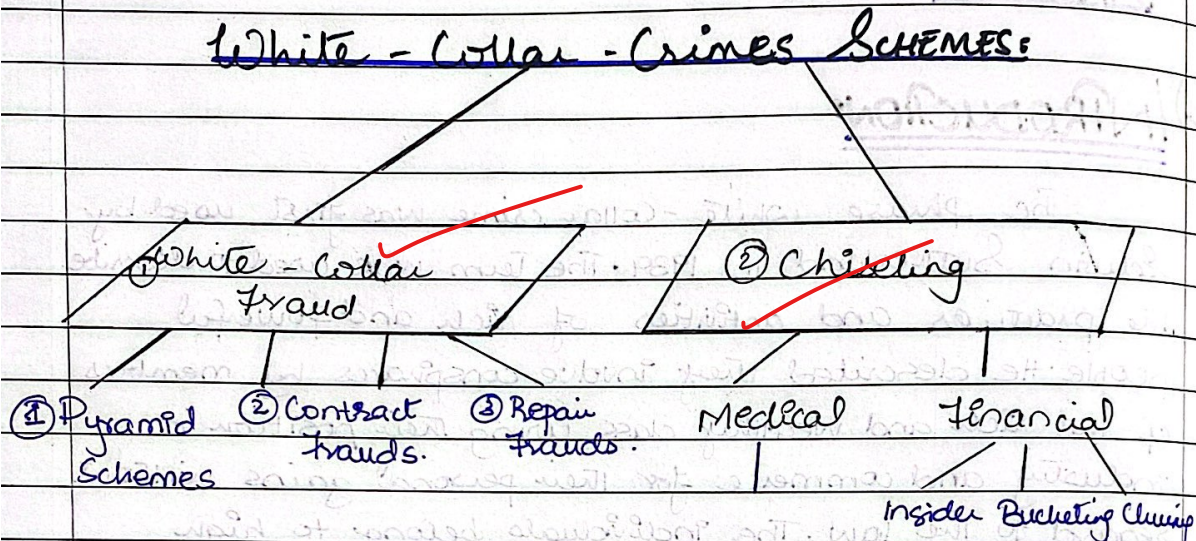 White - Collar - Crimes SCHEMES:
① White - Collar
Fraud
② Chiseling
① Pyramid
Schemes
② Contract
frauds.
③ Repair
Frauds.
Medical
Financial
Insider Bucketing